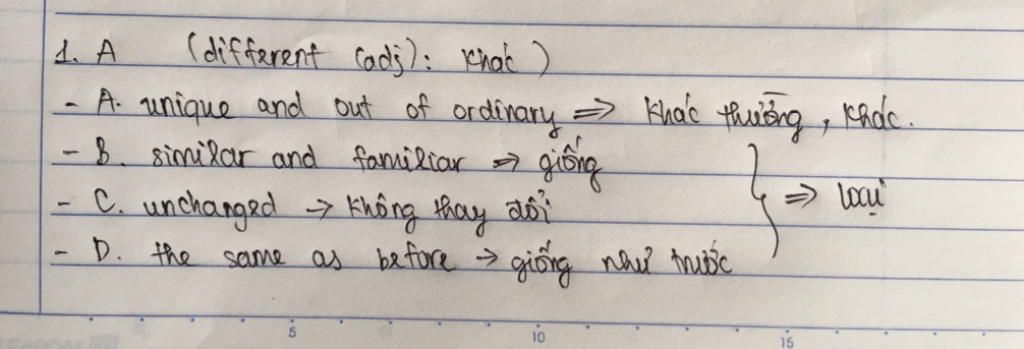 1. A (different (adj): khác)
- A. unique and out of ordinary => khác thường, khác.
- B. similar and familiar => giống
- C. unchanged -> không thay đổi } => loại
- D. the same as before -> giống như trước
5 10 15